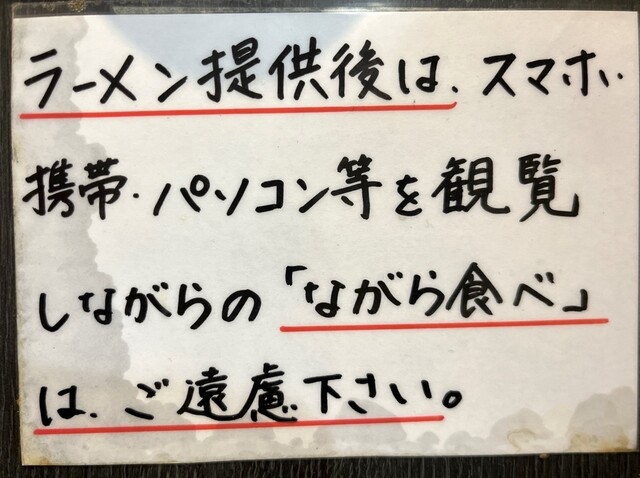 ラーメン提供後は、スマホ・
携帯・パソコン等を観覧
しながらの「ながら食べ」
は、ご遠慮下さい。